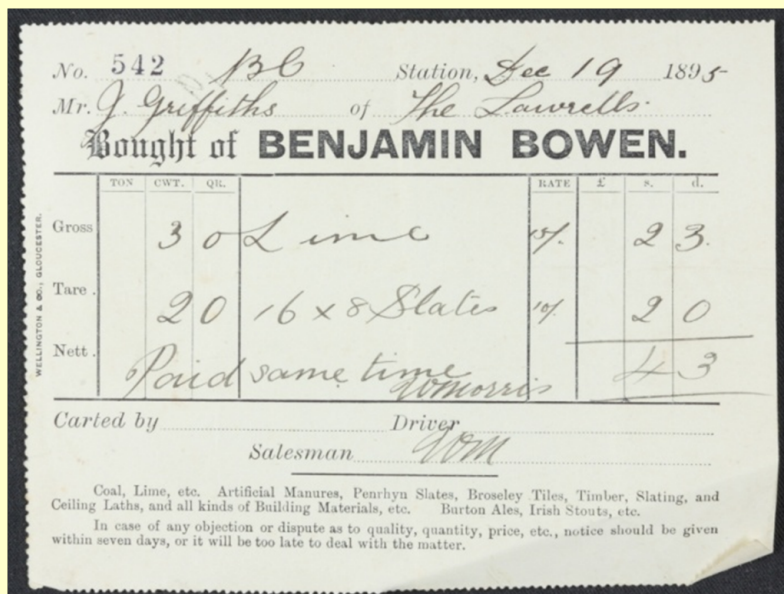 No. 542 BC Station, Dec 19 1895
Mr. J. Griffiths of The Lawrells.
Bought of BENJAMIN BOWEN.
TON CWT. QR. RATE £ s. d.
Gross 3 0 Lime 15/. 2 3.
Tare. 20 16 x 8 Slates 10/. 2 0
Nett. Paid same time WMorris 4 3
Carted by Driver
Salesman WM
Coal, Lime, etc. Artificial Manures, Penrhyn Slates, Broseley Tiles, Timber, Slating, and
Ceiling Laths, and all kinds of Building Materials, etc. Burton Ales, Irish Stouts, etc.
In case of any objection or dispute as to quality, quantity, price, etc., notice should be given
within seven days, or it will be too late to deal with the matter.
WELLINGTON & CO., GLOUCESTER.